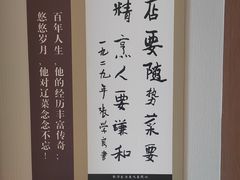 百年人生，他的经历丰富传奇；
悠悠岁月，他对辽菜念念不忘！
店要随势菜要
精烹人要谦和
一九二九年张学良书